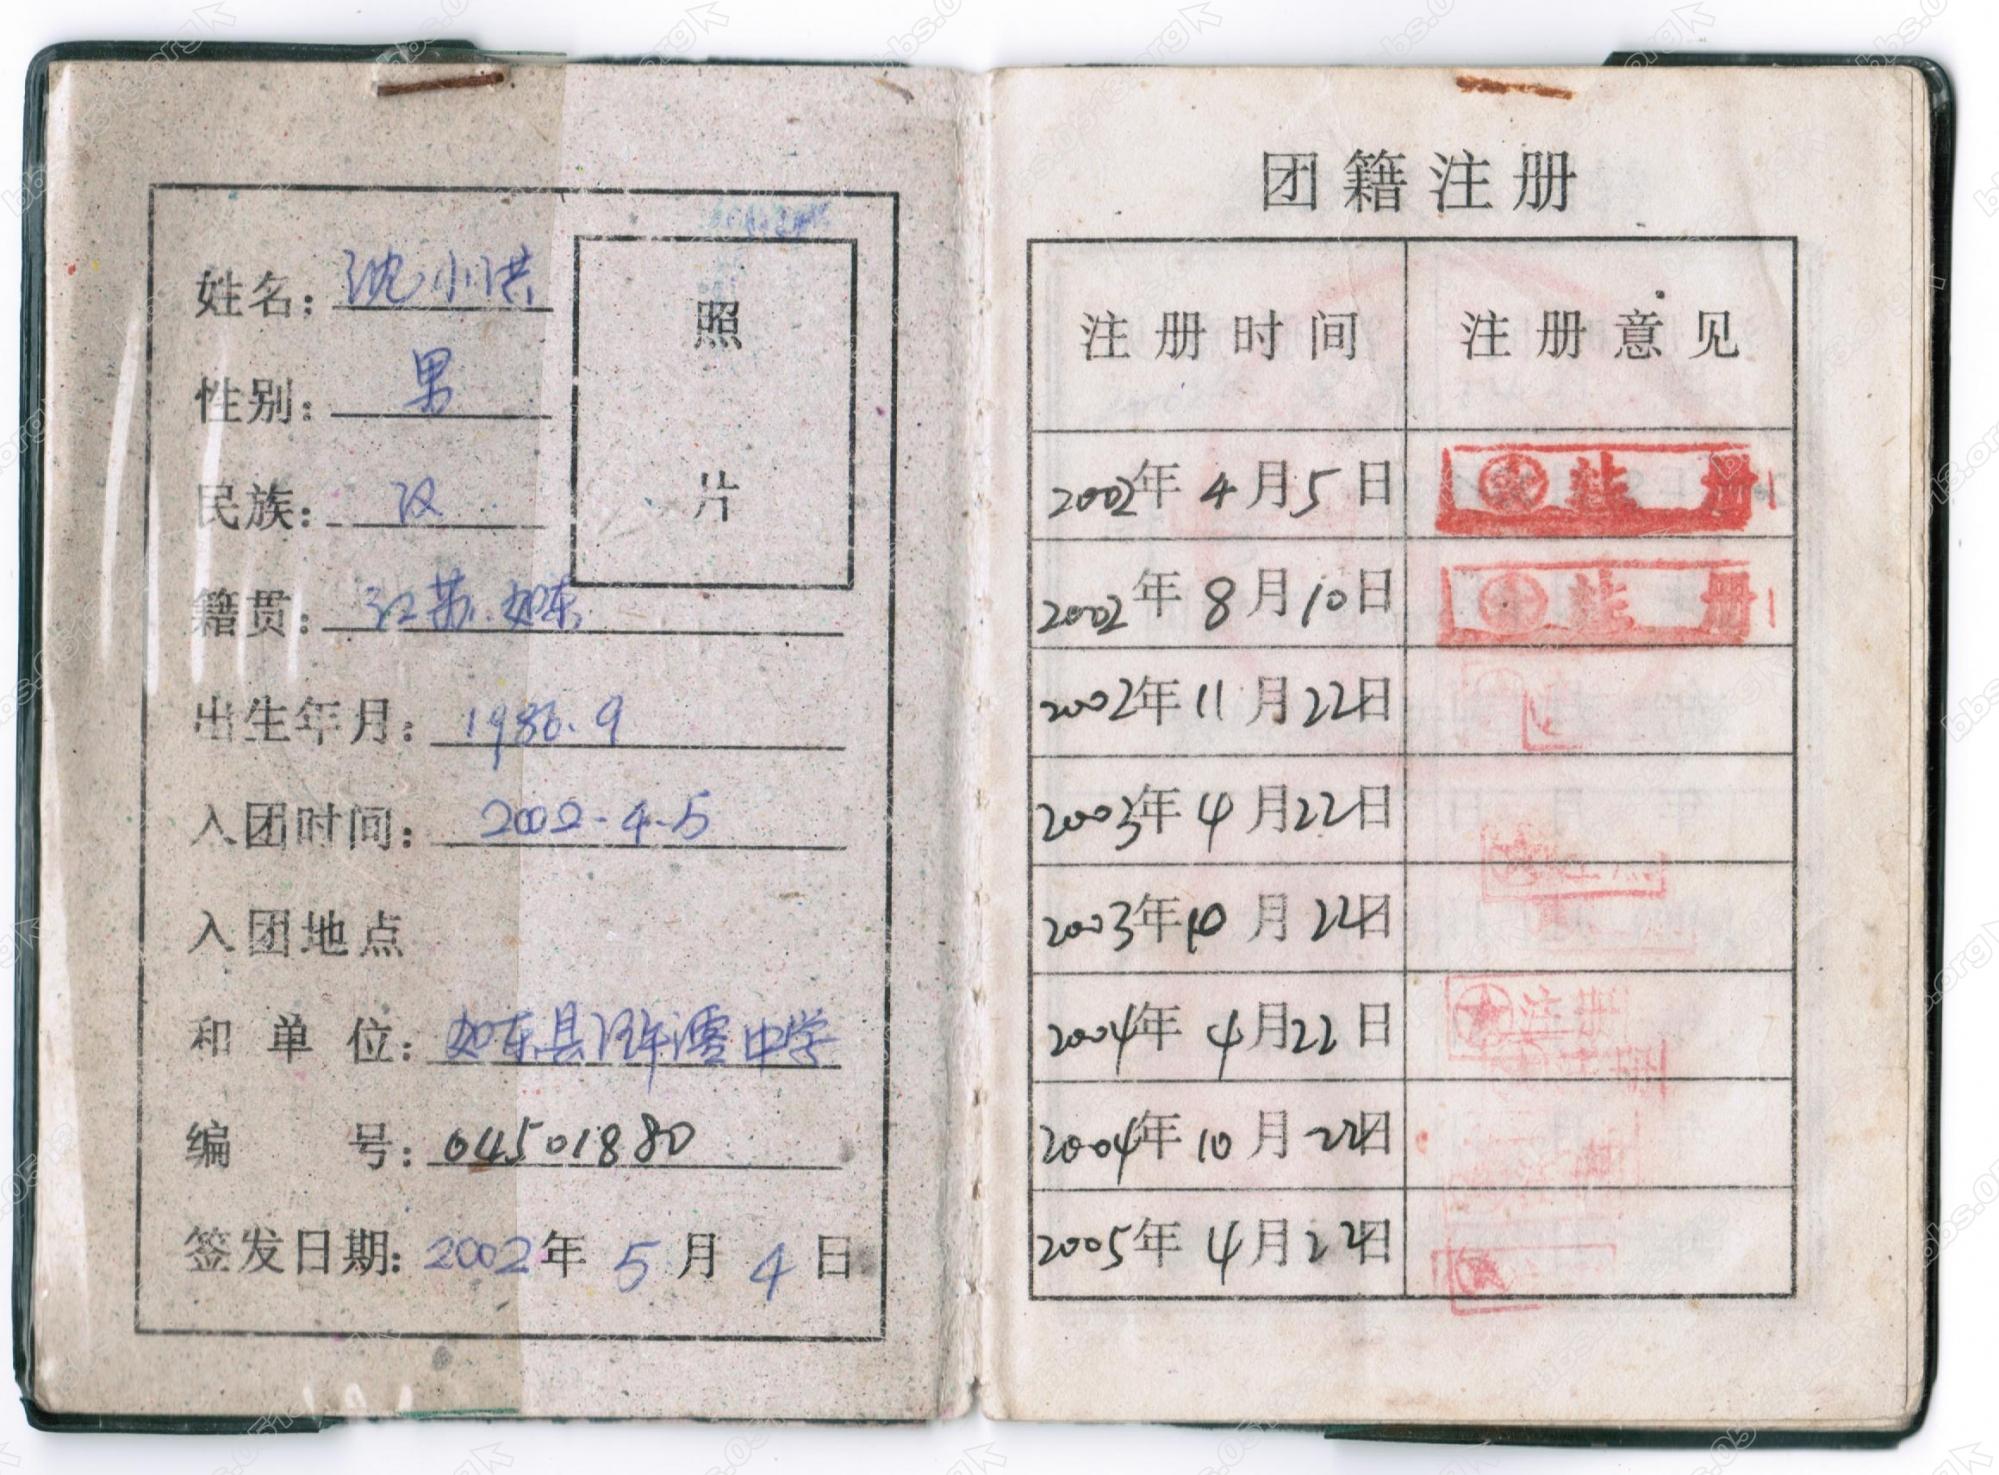 姓名：沈小洪
照
性别：男
民族：汉
片
籍贯：江苏.如东
出生年月：1986.9
入团时间：2002-4-5
入团地点
和单位：如东县 中学
编号：04501880
签发日期：2002年5月4日
团籍注册
注册时间 注册意见
2002年4月5日 注册
2002年8月10日 注册
2002年11月22日
2003年4月22日
2003年10月22日
2004年4月22日 注册
2004年10月22日
2005年4月22日